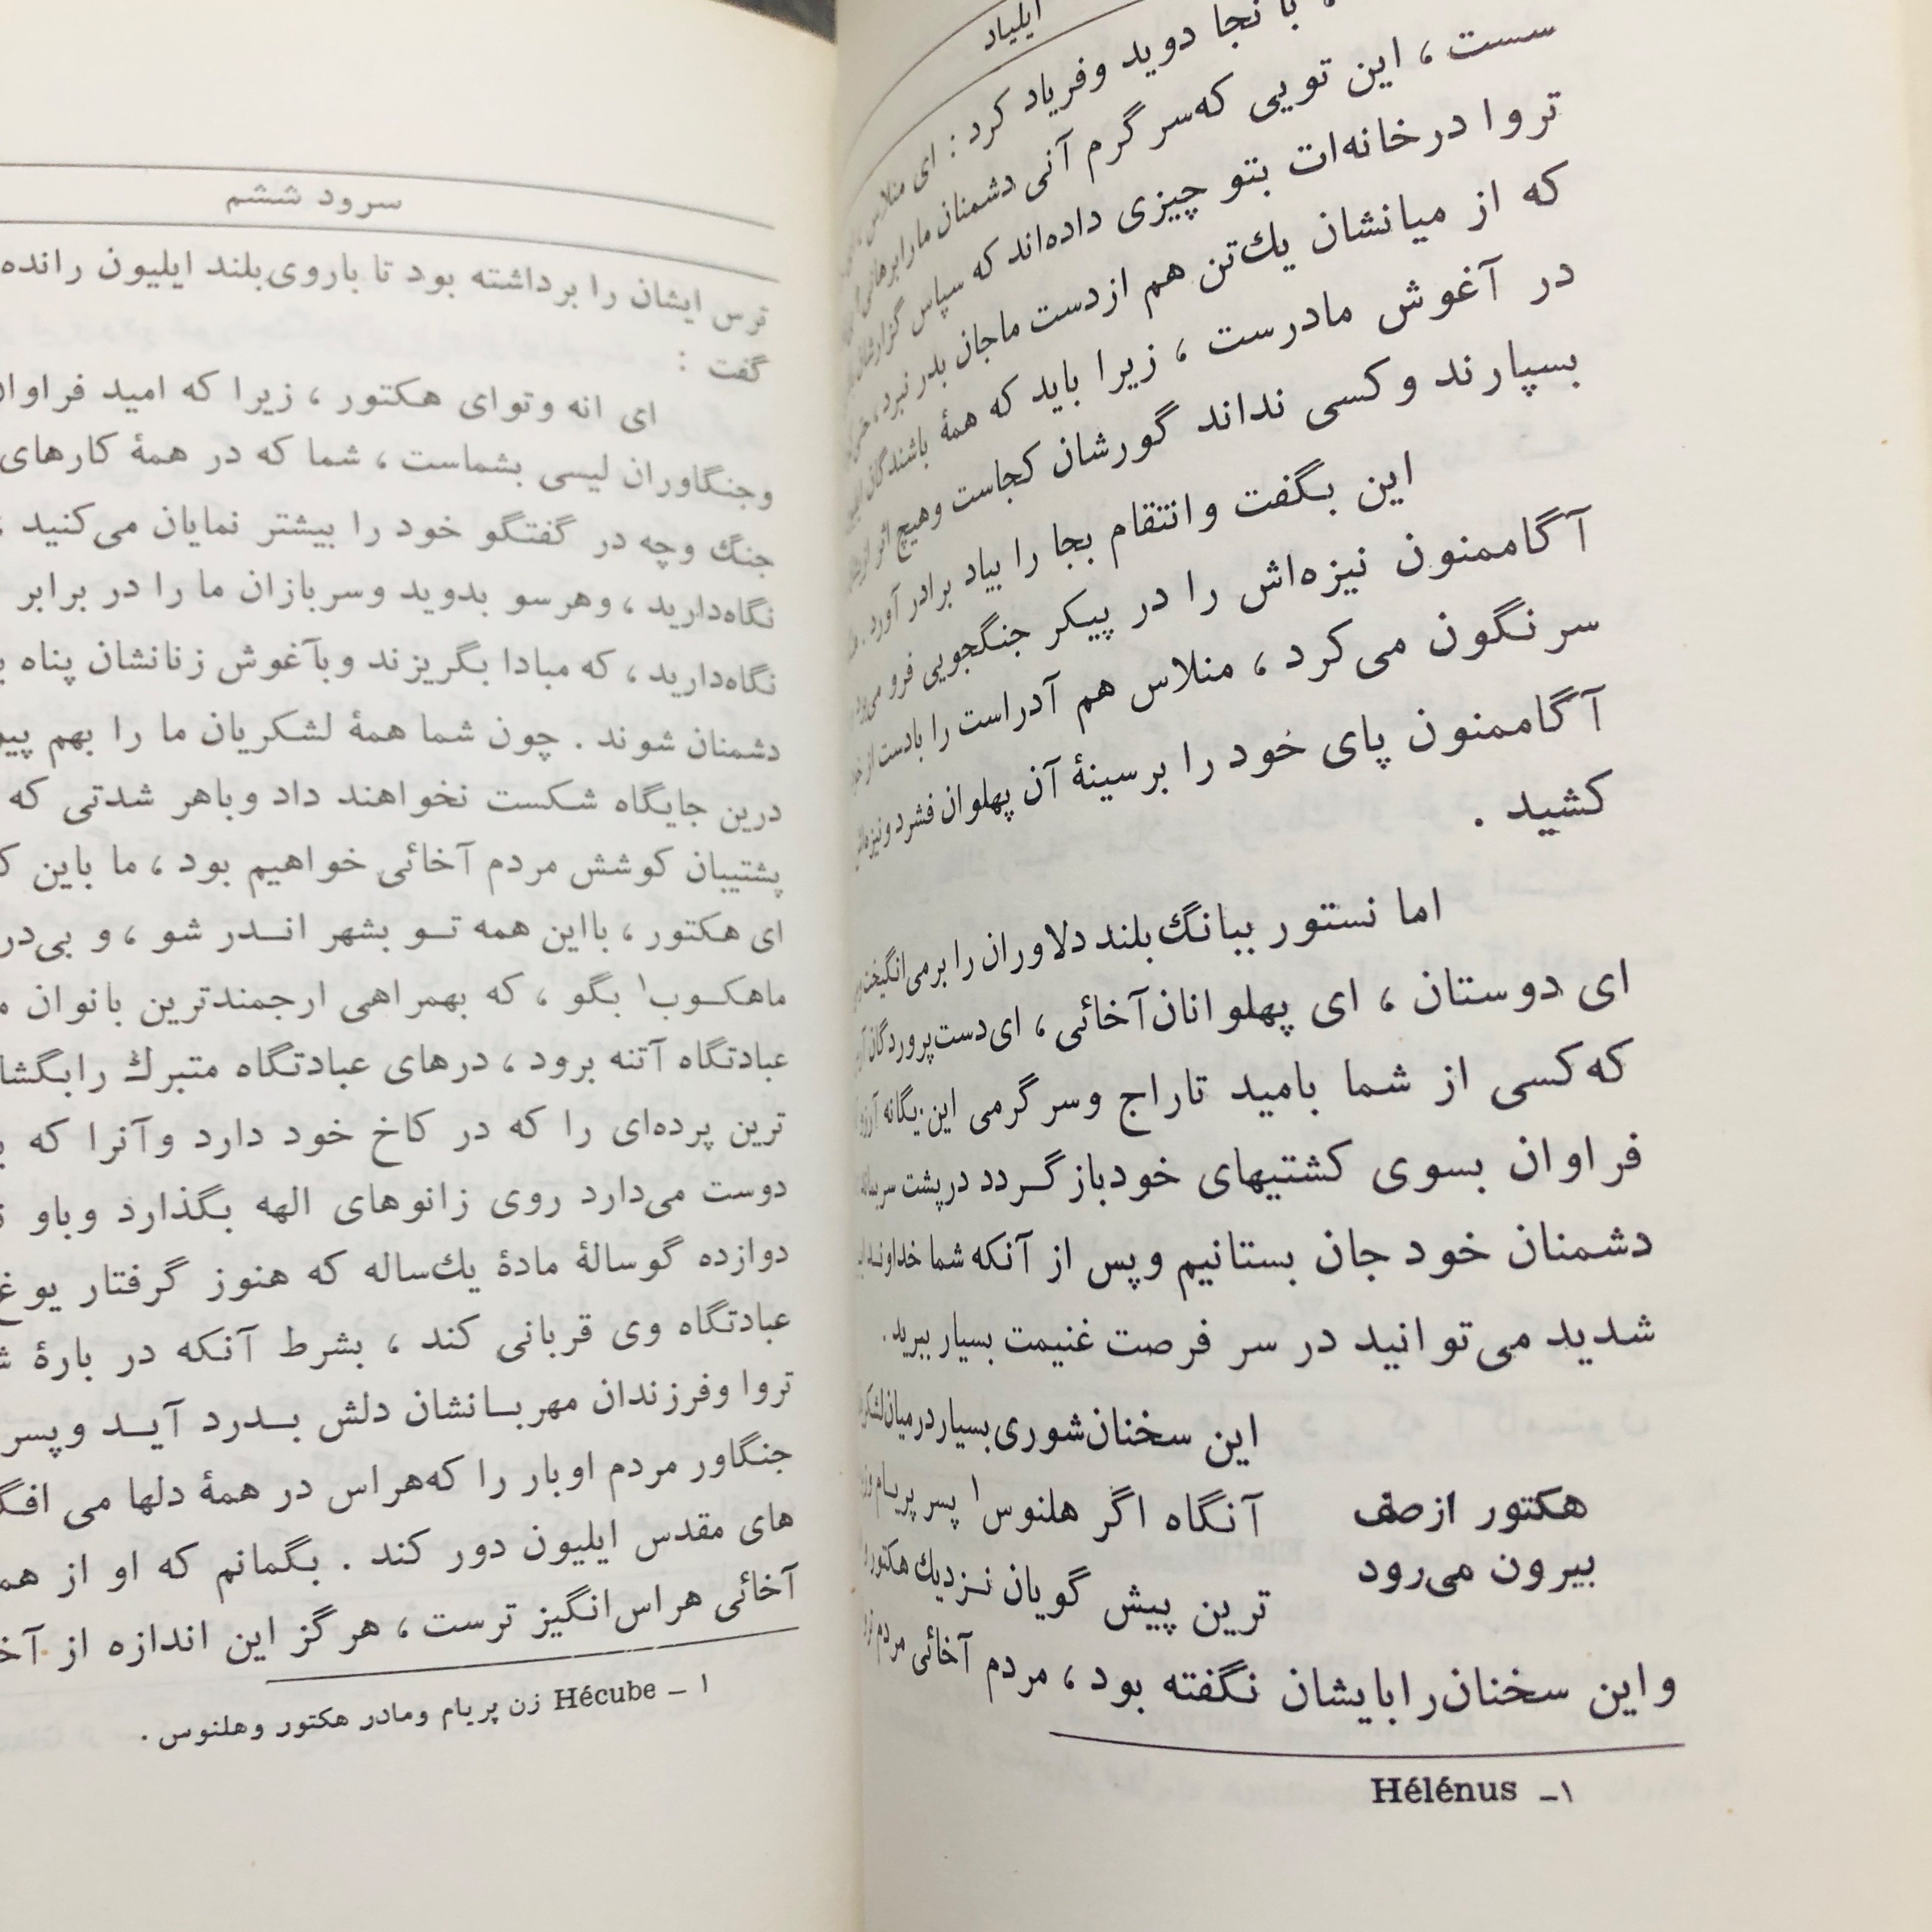 ایلیاد
بآنجا دوید وفریاد کرد : ای منلاس
سست ، این تویی که‌سر گرم آنی دشمنان مارا
تروا درخانه‌ات بتو چیزی داده‌اند که سپاس
که از میانشان یك‌تن هم ازدست ماجان بدر نبرد ،
در آغوش مادرست ، زیرا باید که همهٔ باشندگان
بسپارند وکسی نداند گورشان کجاست وهیچ اثر
این بگفت وانتقام بجا را بیاد برادر آورد .
آگاممنون نیزه‌اش را در پیکر جنگجویی فرو
سرنگون می‌کرد ، منلاس هم آدراست را بادست از
آگاممنون پای خود را برسینهٔ آن پهلوان فشرد
کشید .
اما نستور ببانگ بلند دلاوران را برمی‌انگیخت
ای دوستان ، ای پهلوانان‌آخائی ، ای‌دست‌پروردگان
که‌کسی از شما بامید تاراج وسرگرمی این یگانه
فراوان بسوی کشتیهای خودباز گـردد درپشت سر
دشمنان خود جان بستانیم وپس از آنکه شما
شدید می‌توانید در سر فرصت غنیمت بسیار ببرید .
این سخنان‌شوری‌بسیاردرمیان
هکتور از صف
بیرون می‌رود
آنگاه اگر هلنوس۱ پسر پریـام
ترین پیش گویان نـزدیك هکتور
واین سخنان‌رابایشان نگفته بود ، مردم آخائی مردم
۱ــ Hélénus
سرود ششم
ترس ایشان را برداشته بود تا باروی‌بلند ایلیون رانده
گفت :
ای انه وتوای هکتور ، زیرا که امید
وجنگاوران لیسی بشماست ، شما که در همهٔ کارهای
جنگ وچه در گفتگو خود را بیشتر نمایان می‌کنید
نگاه‌دارید ، وهرسو بدوید وسربازان ما را در برابر
نگاه‌دارید ، که مبادا بگریزند وبآغوش زنانشان پناه
دشمنان شوند . چون شما همهٔ لشکریان ما را بهم
درین جایگاه شکست نخواهند داد وباهر شدتی که
پشتیبان کوشش مردم آخائی خواهیم بود ، ما باین
ای هکتور ، بااین همه تـو بشهر انـدر شو ، و
ماهکـوب۱ بگو ، که بهمراهی ارجمندترین بانوان
عبادتگاه آتنه برود ، درهای عبادتگاه متبرك را
ترین پرده‌ای را که در کاخ خود دارد وآنرا که
دوست می‌دارد روی زانوهای الهه بگذارد وباو
دوازده گوسالهٔ مادهٔ یك‌ساله که هنوز گرفتار
عبادتگاه وی قربانی کند ، بشرط آنکه در بارهٔ
تروا وفرزندان مهربـانشان دلش بـدرد آیـد وپسر
جنگاور مردم اوبار را که‌هراس در همهٔ دلها می
های مقدس ایلیون دور کند . بگمانم که او از
آخائی هراس‌انگیز ترست ، هرگز این اندازه از
۱ ــ Hécube زن پریام ومادر هکتور وهلنوس .